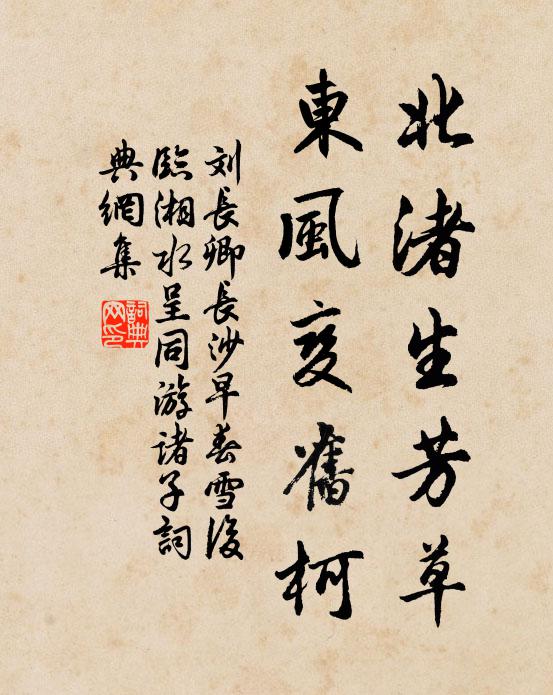 北渚生芳草
東風变舊柯
刘長卿長沙早春雪後
臨湘水呈同游诸子詞
典網集
詞典
网印